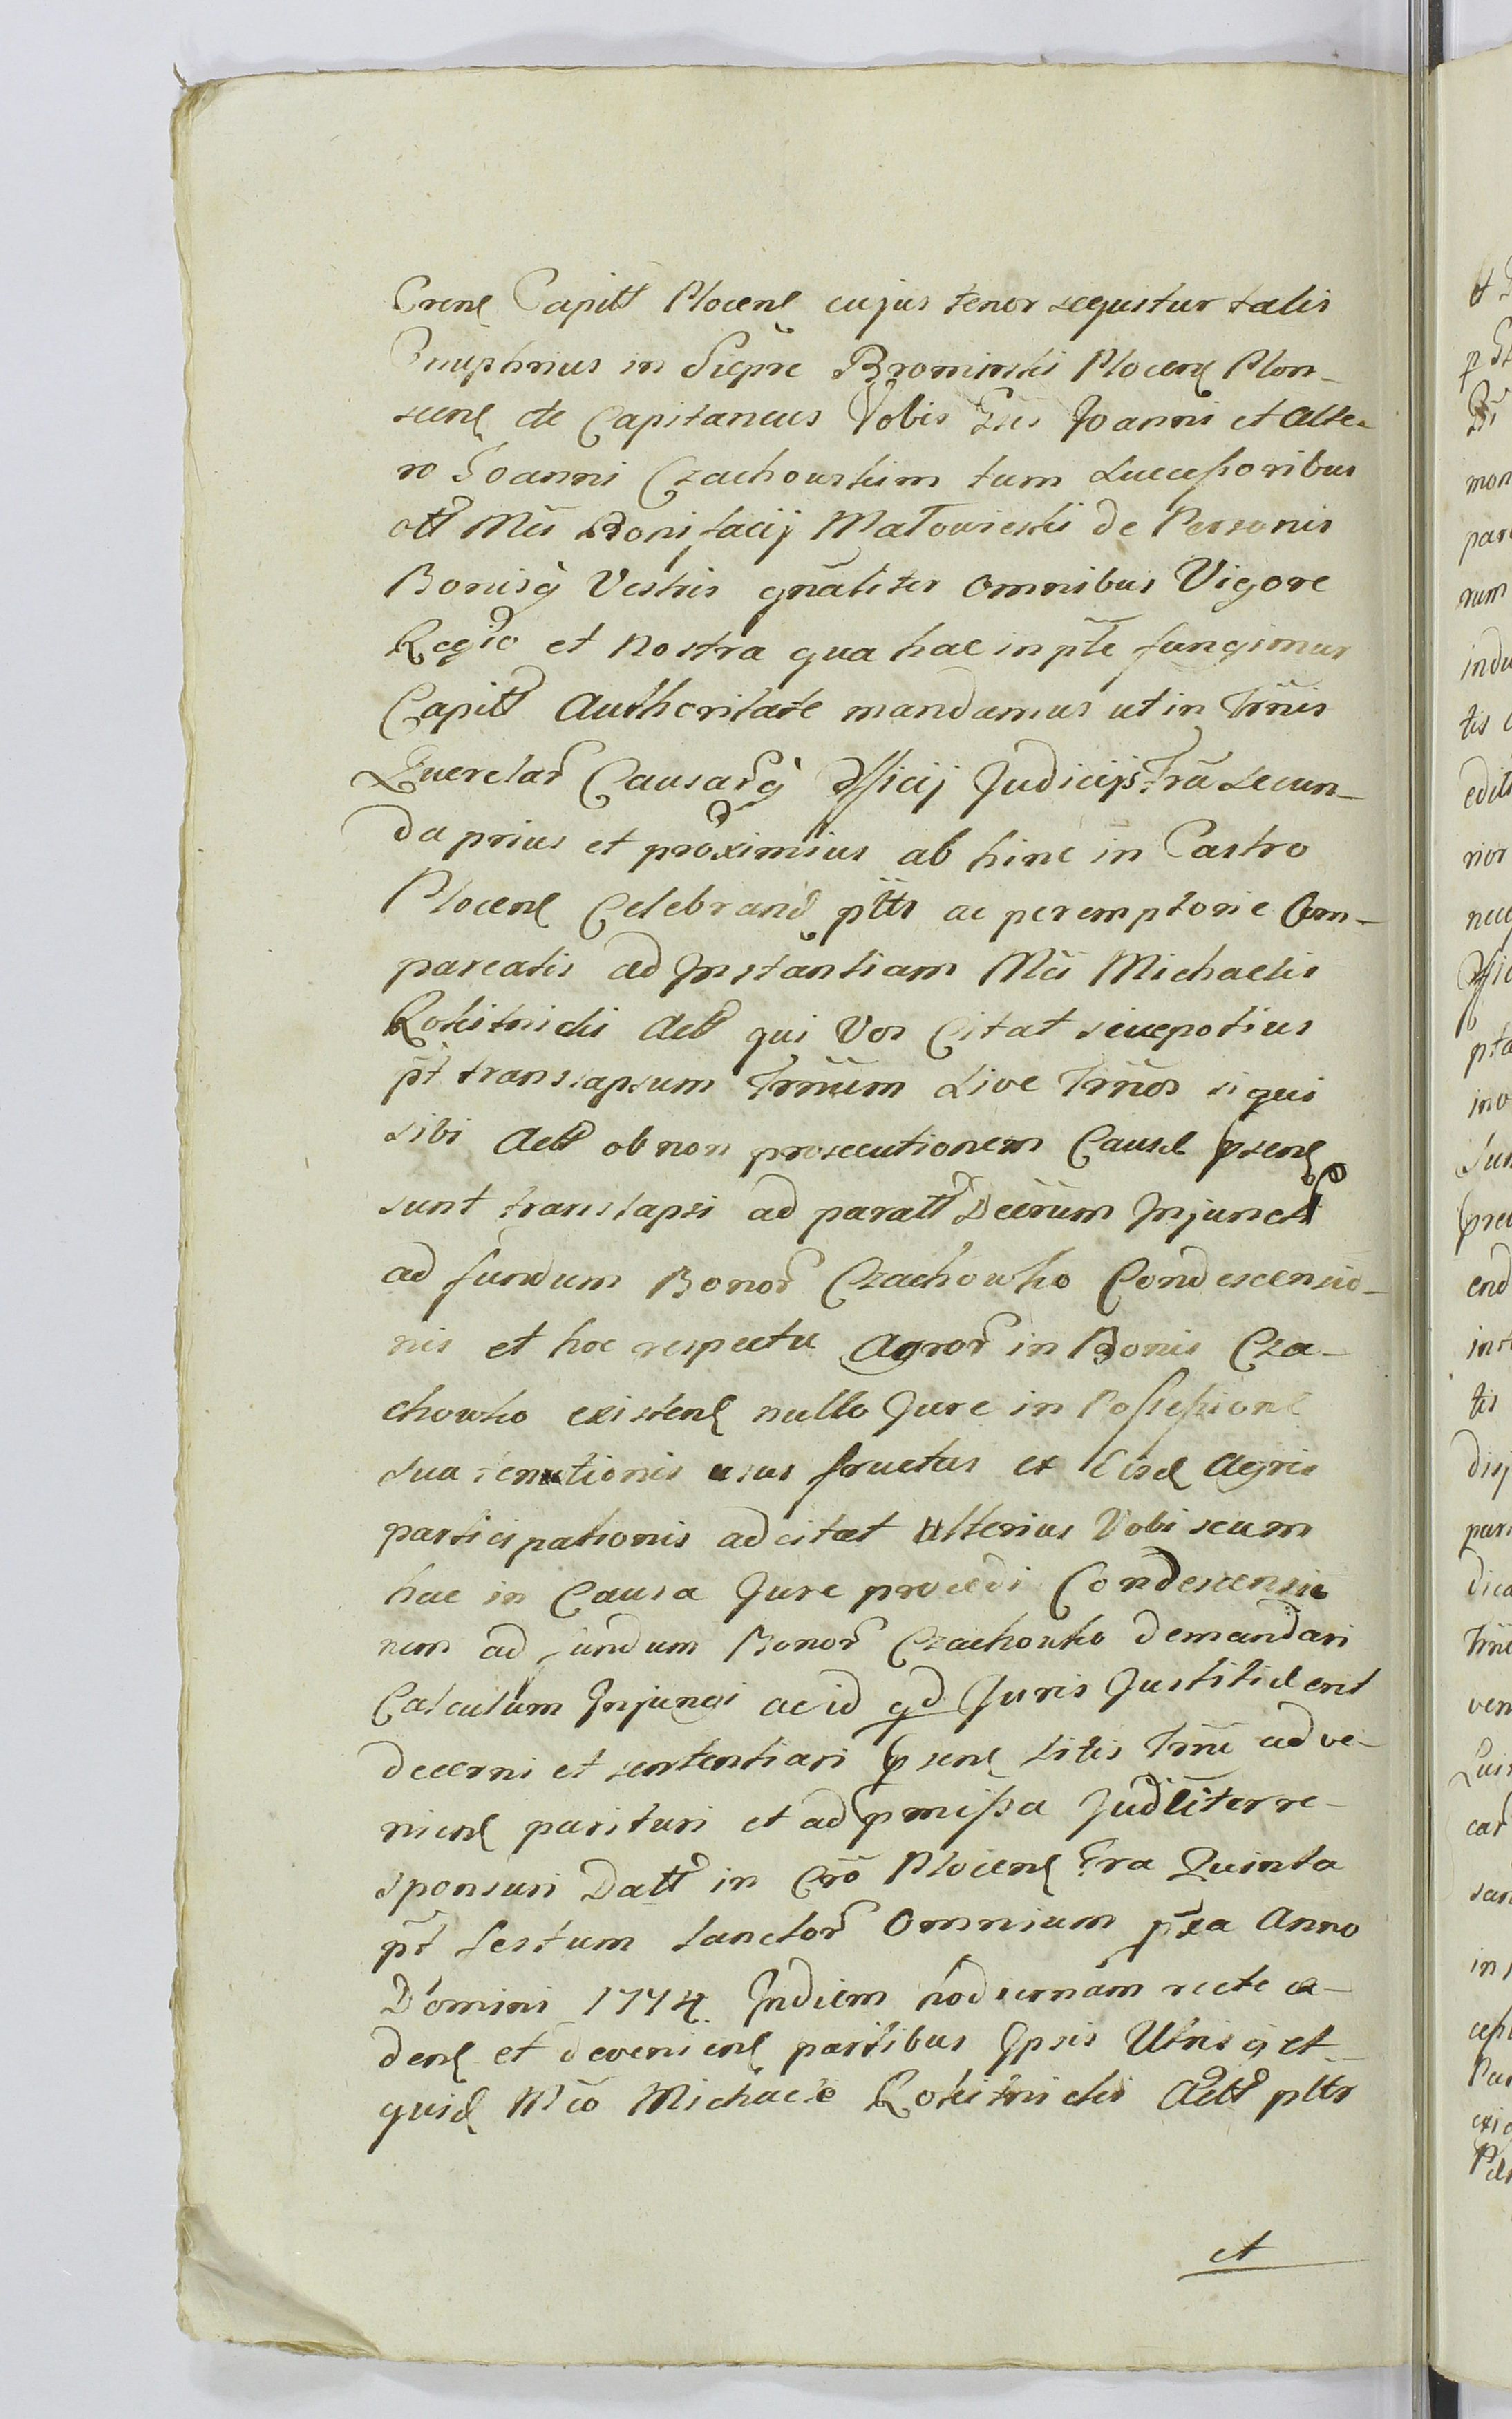 Crens Capitt Plocens cujus tenor sequitur talis
Onuphrius in Siepre Bromirski Plocens Plon-
scens etc Capitaneus Vobis Gsis Joanni et Alte-
ro Joanni Czachowskim tum Successoribus
ott Mci Bonifacij Małowieski de Personis
Bonisq Vestris gnaliter omnibus Vigore
Regio et Nostra qua hac in pte fungimur
Capitt Authoritate mandamus ut in Trnis
Querelar Causarq Officij Judicijs Fra Secun-
da prius et proximius ab hinc in Castro
Plocens Celebrand pltr ac peremptorie Com-
pareatis ad Instantiam Mci Michaelis
Rokitnicki Act qui Vos Citat seu potius
pt translapsum Trnum Sive Trnos si qui
sibi Act ob non prosecutionem Causæ psens
sunt translapsi ad paratt Decrum Injunctæ
ad fundum Bonor Czachowko Condescensio-
nis et hoc respectu Agror in Bonis Cza-
chowko existens nullo Jure in Possessione
sua tentionis usus fructus ex Eisd Agris
participationis adcitat Ulterius Vobiscum
hac in Causa Jure procedi Condescensio
nem ad fundum Bonor Czachowko demandari
Calculum Injungi ac id qd Juris Justitiæ erit
decerni et sententiari psens litis Trni adve-
niens parituri et ad pmissa Judlliter re-
sponsuri Datt in Cro Plocens Fra Quinta
pt Festum Sanctor Omnium pxa Anno
Domini 1774. In diem hodiernam recte ca-
dens et deveniens partibus Ipsis Utrisq et
quid Mco Michaele Rokitnicki Actt pltr
et